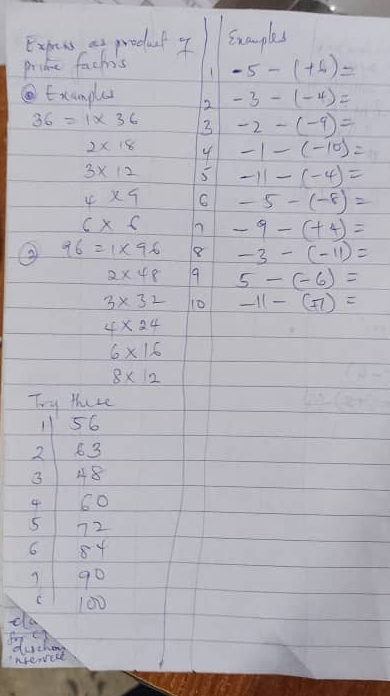 Express as product of
prime factors
① Examples
36 = 1 x 36
2 x 18
3 x 12
4 x 9
6 x 6
② 96 = 1 x 96
2 x 48
3 x 32
4 x 24
6 x 16
8 x 12
Try these
1 56
2 63
3 48
4 60
5 72
6 84
7 90
100
Examples
1 -5 - (+4) =
2 -3 - (-4) =
3 -2 - (-9) =
4 -1 - (-10) =
5 -11 - (-4) =
6 -5 - (-8) =
7 -9 - (+4) =
8 -3 - (-11) =
9 5 - (-6) =
10 -11 - ( ) =